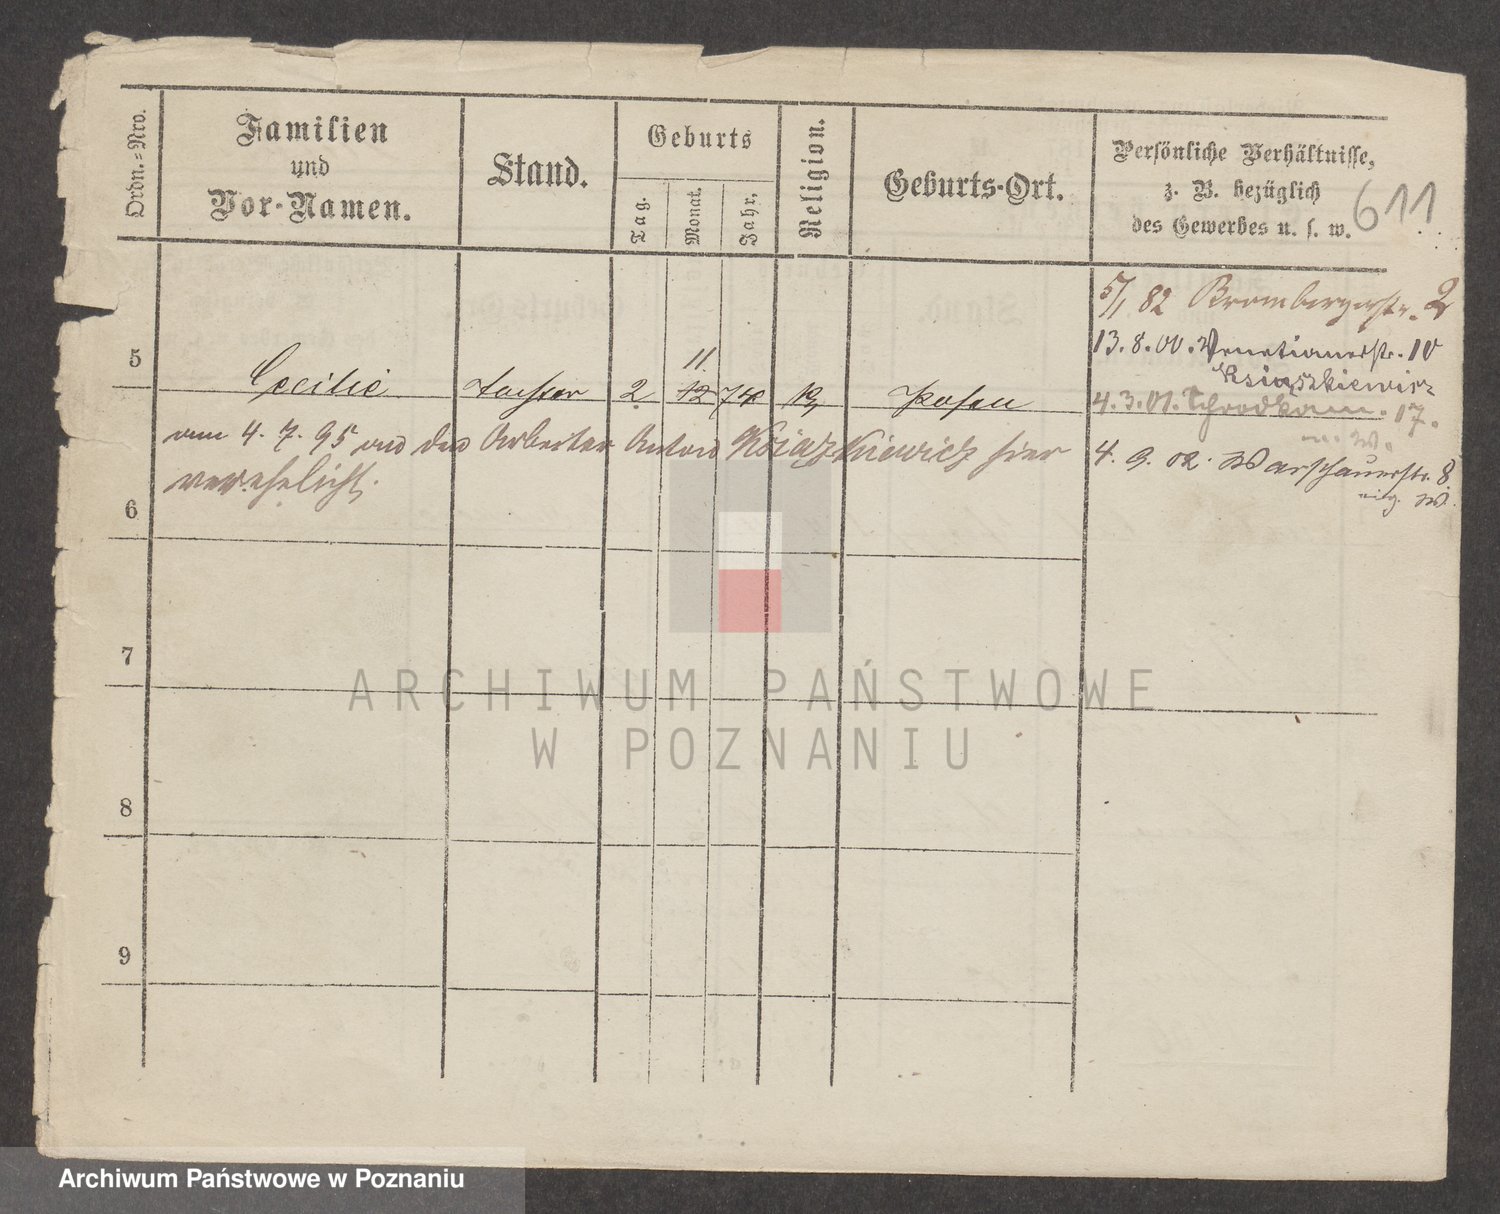 Ordn.=Nro.
Familien
und
Vor-Namen.
Stand.
Geburts
Tag.
Monat.
Jahr.
Religion.
Geburts-Ort.
Persönliche Verhältnisse,
z. B. bezüglich
des Gewerbes u. s. w.
611
5/1 82 Brombergerstr. 2
13. 8. 00. Venetianerstr. 10
Książkiewicz
5 Cecilie Tochter 2 12 11. 74 k Posen
4. 3. 01. Schrodkam. 17.
m. W.
am 4. 7. 95 mit dem Arbeiter Anton Książkiewicz hier
4. 9. 02. Warschauerstr. 8.
verehelicht.
W.
6
7
8
9
ARCHIWUM PAŃSTWOWE
W POZNANIU
Archiwum Państwowe w Poznaniu